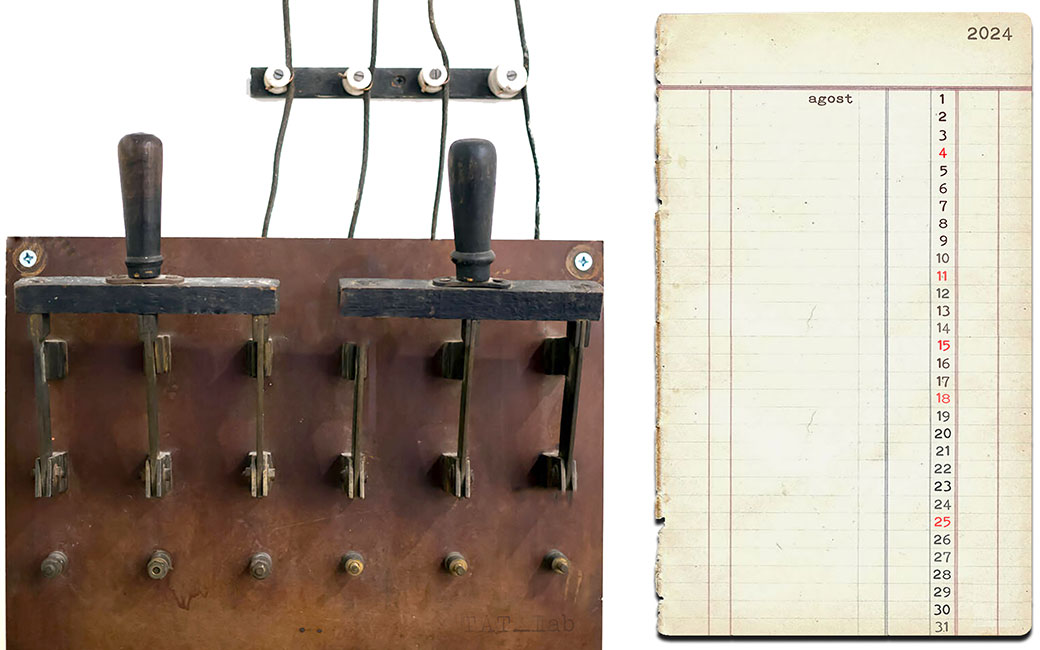 2024
agost
1
2
3
4
5
6
7
8
9
10
11
12
13
14
15
16
17
18
19
20
21
22
23
24
25
26
27
28
29
30
31
TAT_lab